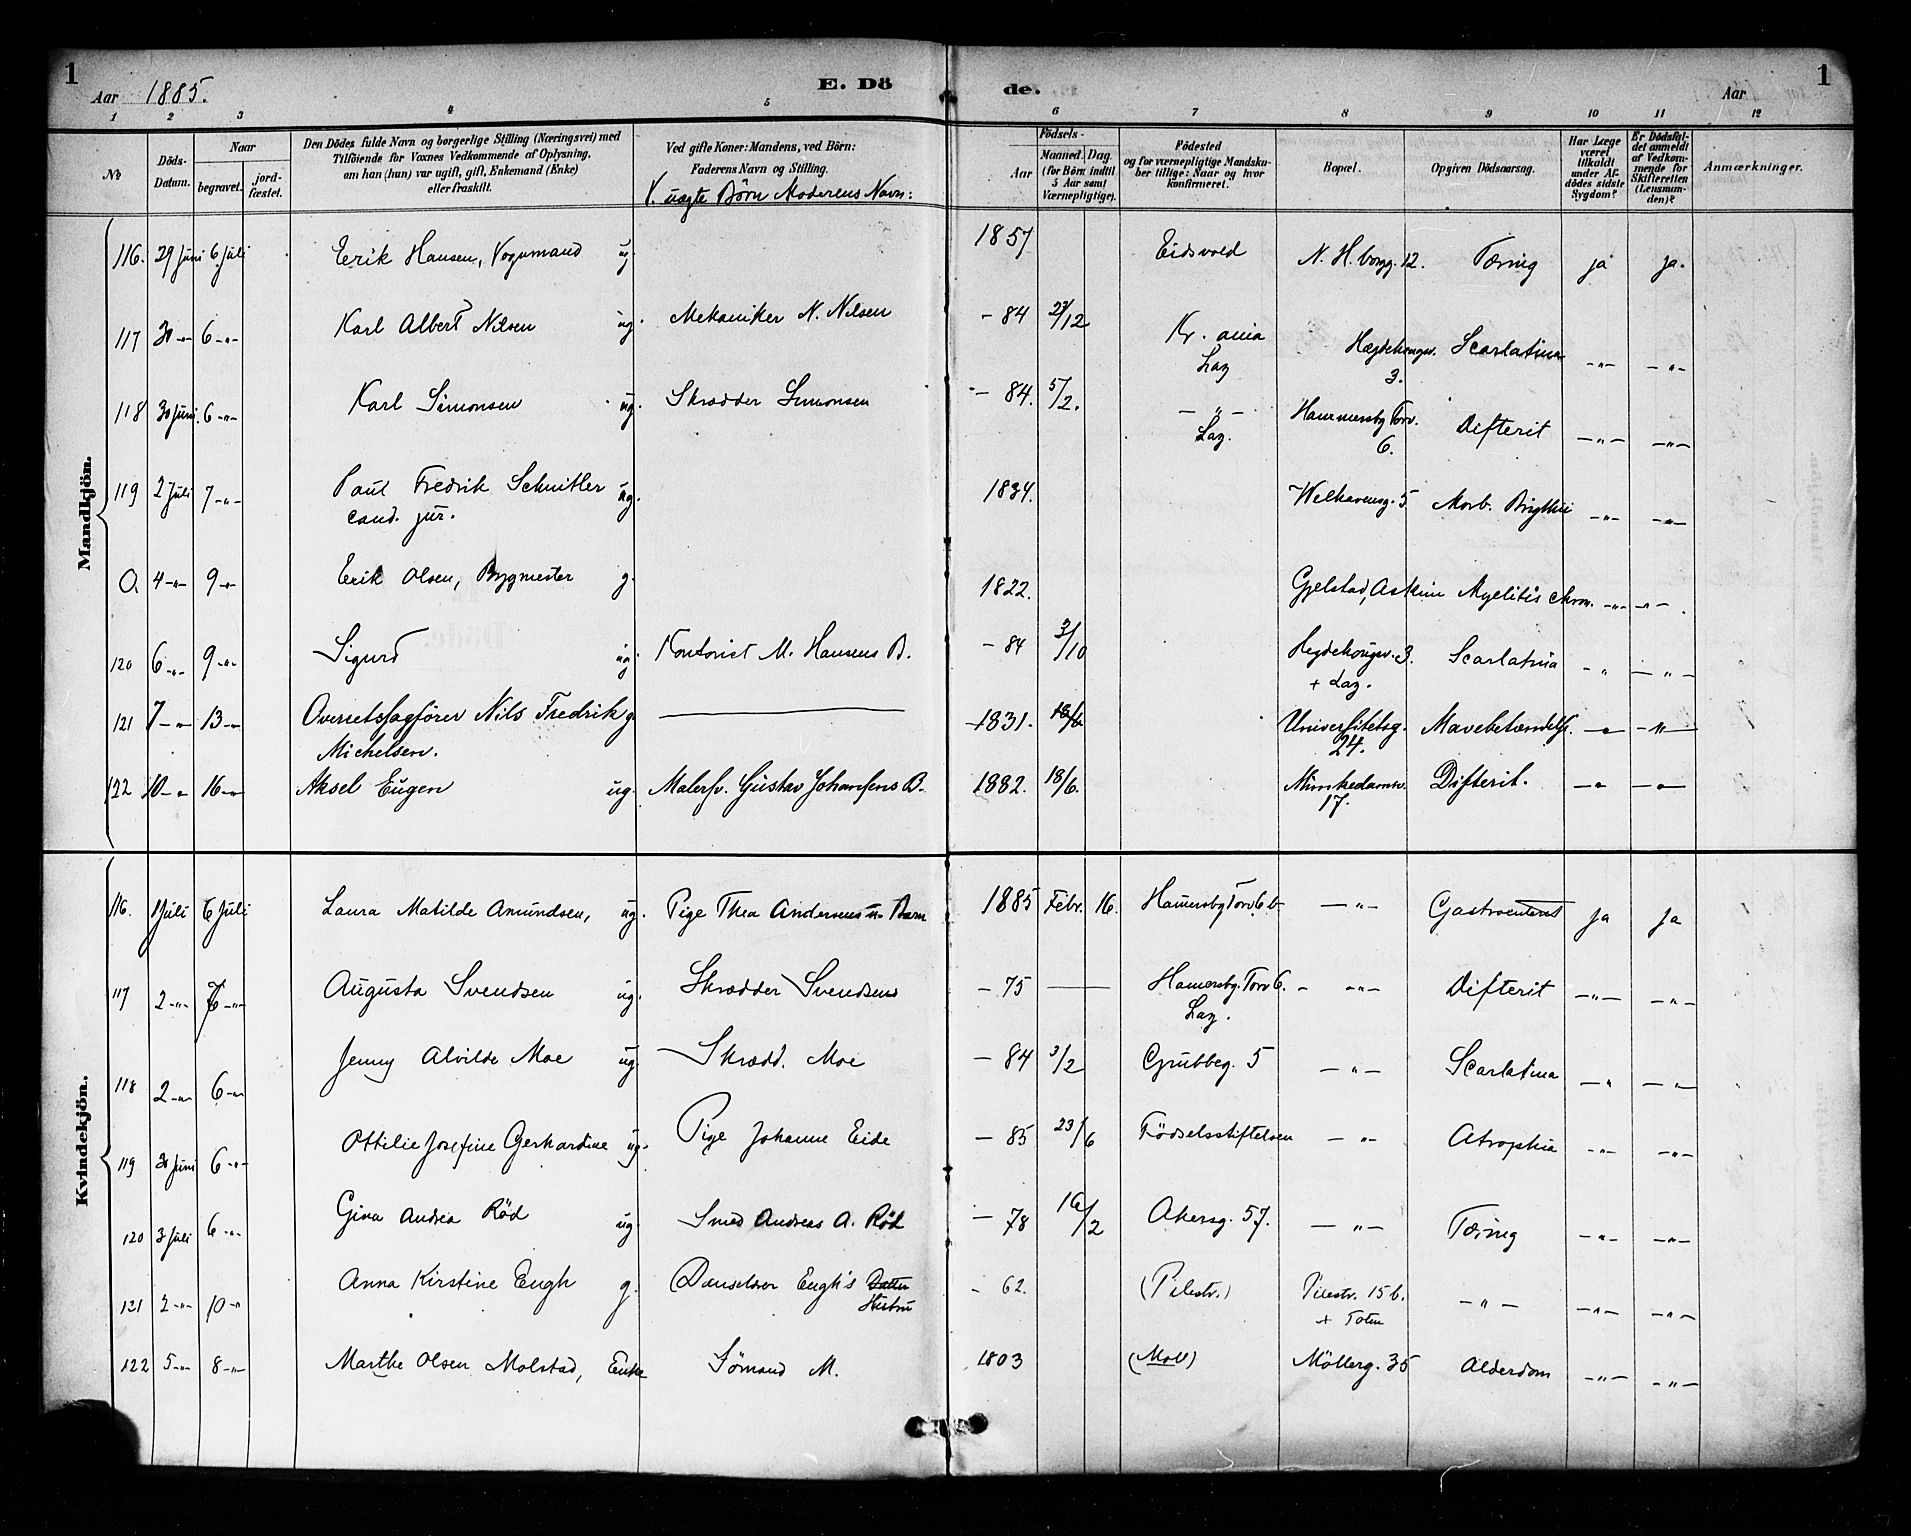 1
Aar 1885.
E. Döde.
Aar
1
1 2 3 4 5 6 7 8 9 10 11 12
No
Döds-Datum.
Naar
begravet.
jord-fæstet.
Den Dödes fulde Navn og borgerlige Stilling (Næringsvei) med
Tilföiende for Voxnes Vedkommende af Oplysning,
om han (hun) var ugift, gift, Enkemand (Enke)
eller fraskilt.
Ved gifte Koner: Mandens, ved Börn:
Faderens Navn og Stilling.
V. uægte Börn Moderens Navn:
Födsels-
Aar
Maaned. Dag.
(for Börn indtil
5 Aar samt
Værnepligtige).
Födested
og for værnepligtige Mandska-
ber tillige: Naar og hvor
konfirmeret.
Bopæl.
Opgiven Dödsaarsag.
Har Læge
været
tilkaldt
under Af-
dödes sidste
Sygdom?
Er Dödsfal-
det anmeldt
af Vedkom-
mende for
Skifteretten
(Lensman-
den)?
Anmærkninger.
Mandkjön.
116. 29 Juni 6 Juli Erik Hansen, Vognmand ug. 1857 Eidsvold N. H. borgg. 12. Tæring ja ja.
117 30 -"- 6 -"- Karl Albert Nilsen ug. Mekaniker N. Nilsen - 84 23/12 Kr. ania Hægdehougsv. Scarlatina -"- -"-
Laz 3.
118 30 Juni. 6 -"- Karl Simonsen ug. Skrædder Simonsen - 84. 5/2. -"- Hammersby Torv. Difterit -"- -"-
Laz. 6.
119 2 Juli 7 -"- Paul Fredrik Schnitler ug. 1834. Welhavensg. 5 Morb. Brigthii -"- -"-
cand. jur.
O. 4 -"- 9 -"- Erik Olsen, Bygmester g. 1822. Gjelstad, Askim Myelitis chron. -"- -"-
120 6 -"- 9 -"- Sigurd ug. Kontorist M. Hansens B. - 84 3/10 Hegdehougsv. 3. Scarlatina -"- -"-
+ Laz.
121 7 -"- 13 -"- Overretssagförer Nils Fredrik g. — -1831. Universitetsg. Mavebetændelse. -"- -"-
Michelsen. 24.
122 10 -"- 16 -"- Aksel Eugen ug. Malersv. Gustav Johansens B. 1882. 18/6. Munkedamsv. Difterit. -"- -"-
17.
Kvindekjön.
116. 1 Juli 6 Juli Laura Matilde Amundsen, ug. Pige Thea Andersens u. Barn 1885 Febr. 16. Hamersby Torv 6 b -"- Gastroenterit ja ja
117 2 -"- 6 -"- Augusta Svendsen ug. Skrædder Svendsens - 75 — Hamersbg. Torv 6. -"- Difterit -"- -"-
Laz.
118 2 -"- 6 -"- Jenny Alvilde Moe ug. Skrædd. Moe - 84 3/2 Grubbeg. 5 -"- Scarlatina -"- -"-
119 30 Juni 6 -"- Ottilie Josefine Gerhardine ug. Pige Johanne Eide - 85 23/6 Födselsstiftelsen -"- Atrophia -"- -"-
120 3 Juli 6 -"- Gina Andrea Röd ug. Smed Andreas A. Röd - 78 16/2 Akersg. 57. -"- Tæring -"- -"-
121 2 -"- 10 -"- Anna Kirstine Engh g. Danselærer Engh's Datter - 62. (Pilestr.) Pilestr. 15 b. -"- -"- -"-
Hustru + Toten
122 5 -"- 8 -"- Marthe Olsen Molstad, Enke Sömand M. 1803 (Moll) Möllerg. 35 Alderdom -"- -"-